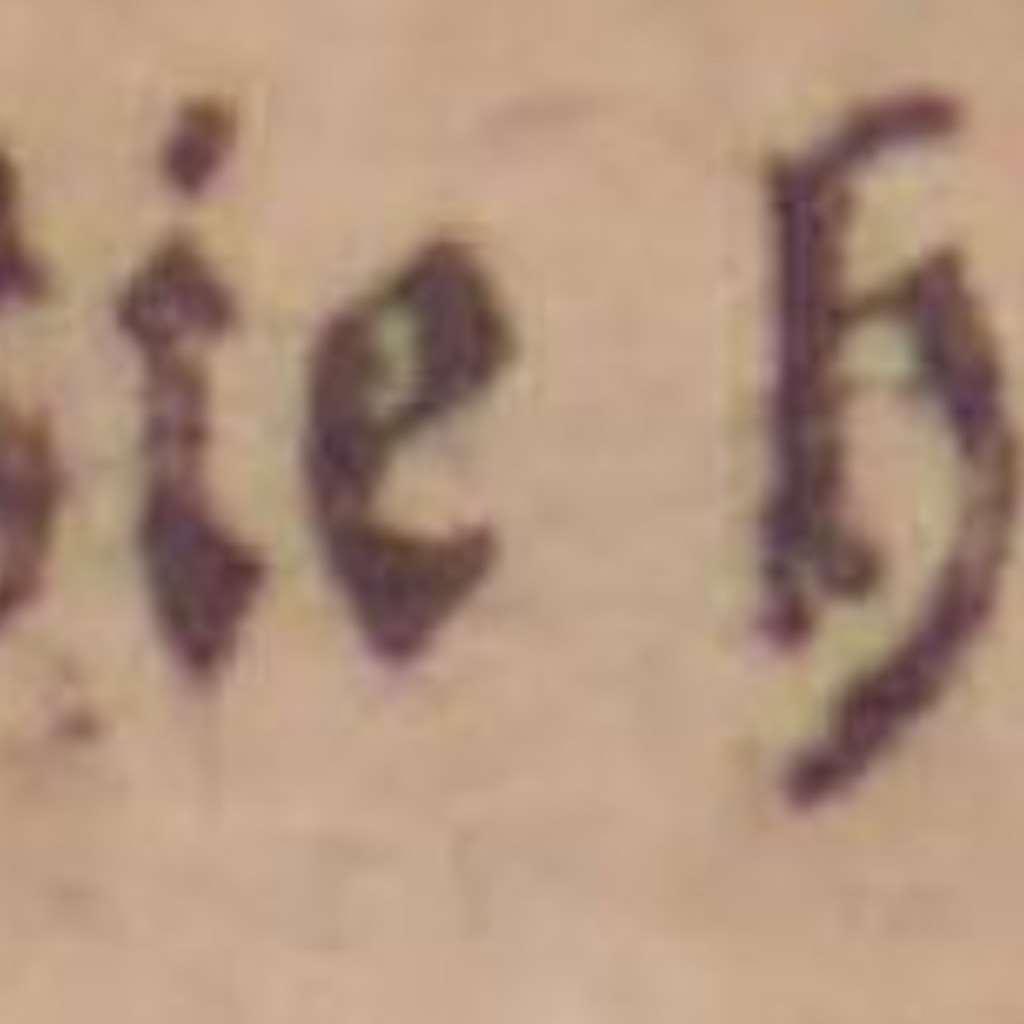 ie h